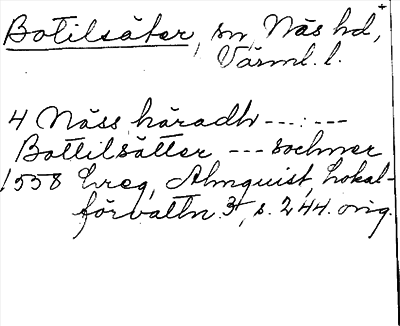 Botilsäter, sn, Näs hd,
Värml. l.
4 Näss häradh --- : ---
Bottilsätter --- sochner
1558 Lreg, Almquist, Lokal-
förvaltn. 3, s. 244. orig.